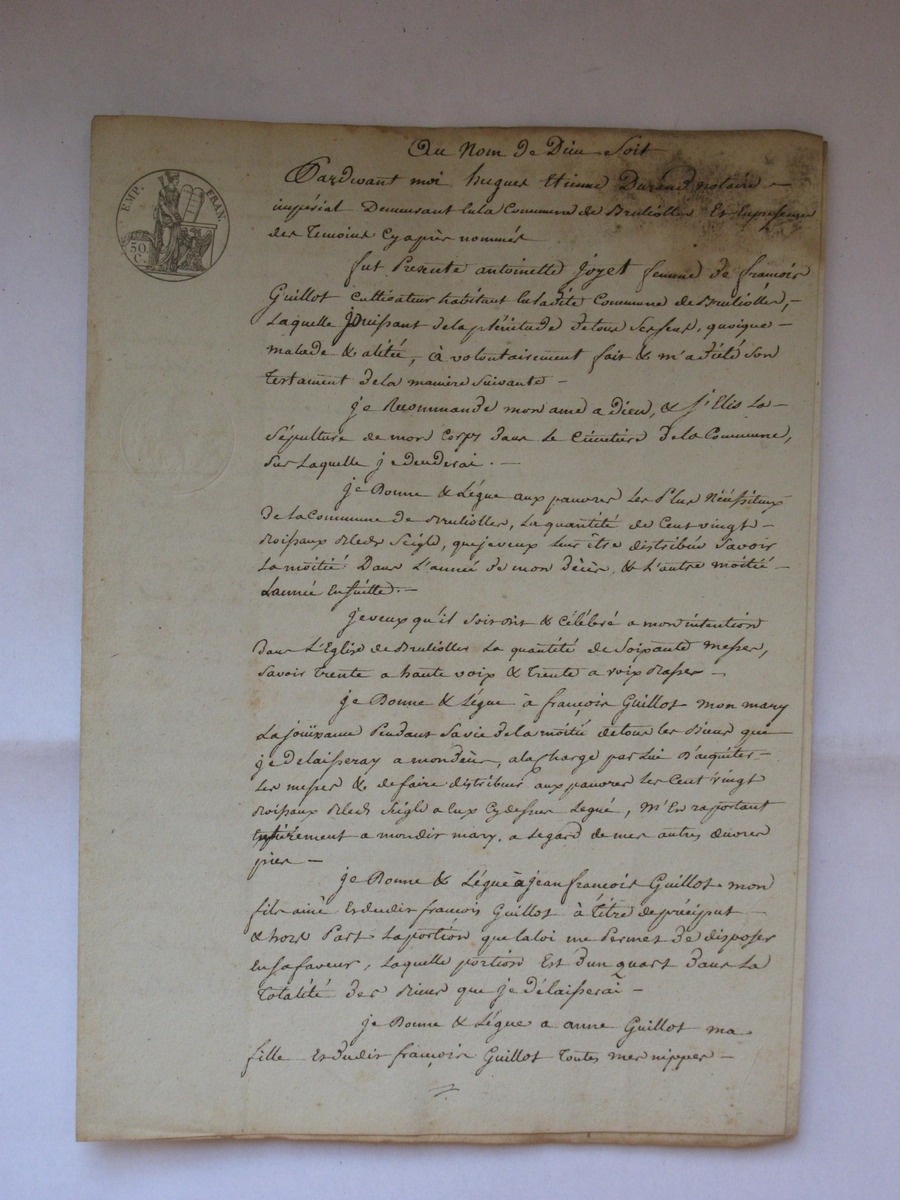 EMP. FRAN.
50 C.
Au Nom de Dieu Soit
Pardevant moi hugues Etienne Durand notaire
impérial Demeurant En la Commune de Brulioller Et En presence
des Temoins Cy après nommés
fut Presente antoinette Joyet femme de françois
Guillot cultivateur habitant En la dite Commune de Brulioller,
Laquelle Jouissant de la plénitude de tous Ses Sens, quoique
malade & alitée, à volontairement fait & m'a dicté Son
Testament de la maniere Suivante
je Recommande mon ame a Dieu, & j'Elis La
Sépulture de mon Corps dans Le Cimetiere de la Commune,
Sur Laquelle je decederai.
je Donne & Légue aux pauvres Les Plus Nécéssiteux
de La Commune de Brulioller, La quantité de Cent vingt
Boissaux Bled Seigle, que je veux Leur être distribué Savoir
La moitié Dans L'année de mon décès, & L'autre moitié
L'année Ensuitte.
je veux qu'il Soit dit & Célébré a mon intention
Dans L'Eglise de Brulioller La quantité de Soixante Messes,
Savoir trente a haute voix & trente a voix Basse
je Donne & Légue à françois Guillot mon mary
La jouïssance Pendant Sa vie de la moitié de tous les Biens que
je Delaisseray a mon décès, a la Charge par Lui D'aquiter
Les messes & de faire distribuer aux pauvres les Cent vingt
Boissaux Bled Seigle a Eux Cy dessus Legué, M'En raportant
Entiérement a mon dit mary, a Legard de mes autres œuvres
pies
je Donne & Légue à jean françois Guillot mon
fils ainé Et dudit françois Guillot à titre de préciput
& hors Part La portion que la loi me Permet de disposer
En Sa faveur, Laquelle portion Est d'un quart dans La
Totalité des Biens que je délaisserai
je Donne & Légue a anne Guillot ma
fille Et dudit françois Guillot Toutes mes nippes